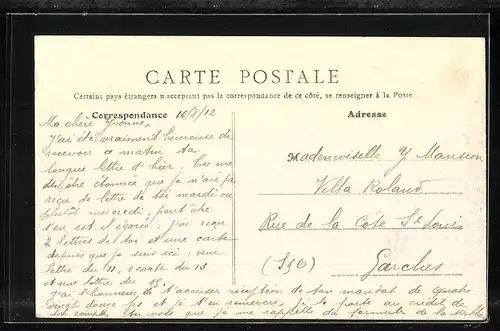 CARTE POSTALE
Certains pays étrangers n'acceptent pas la correspondance de ce côté, se renseigner à la Poste
Correspondance 16/8/12
Adresse
Ma chère Yvonne,
J'ai été vraiment heureuse de
recevoir ce matin ta
longue lettre d'hier. Tu me
dis être étonnée que je n'ai pas
reçu de lettre de toi mardi ou
plutôt mercredi, peut être
s'en est égarée. J'ai reçu
2 lettres de toi et une carte
depuis que je suis ici : une
lettre du 11, 1 carte du 13
et une lettre du 15.
J'ai l'honneur de t'accuser réception de ton mandat de quatre
vingt douze frs et je t'en remercie, je le porte au crédit de
ton compte. Tu vois que je me rappelle du formule de la
Mademoiselle Y
Villa Roland
Rue de la Côte St Louis
(S&O) Garches